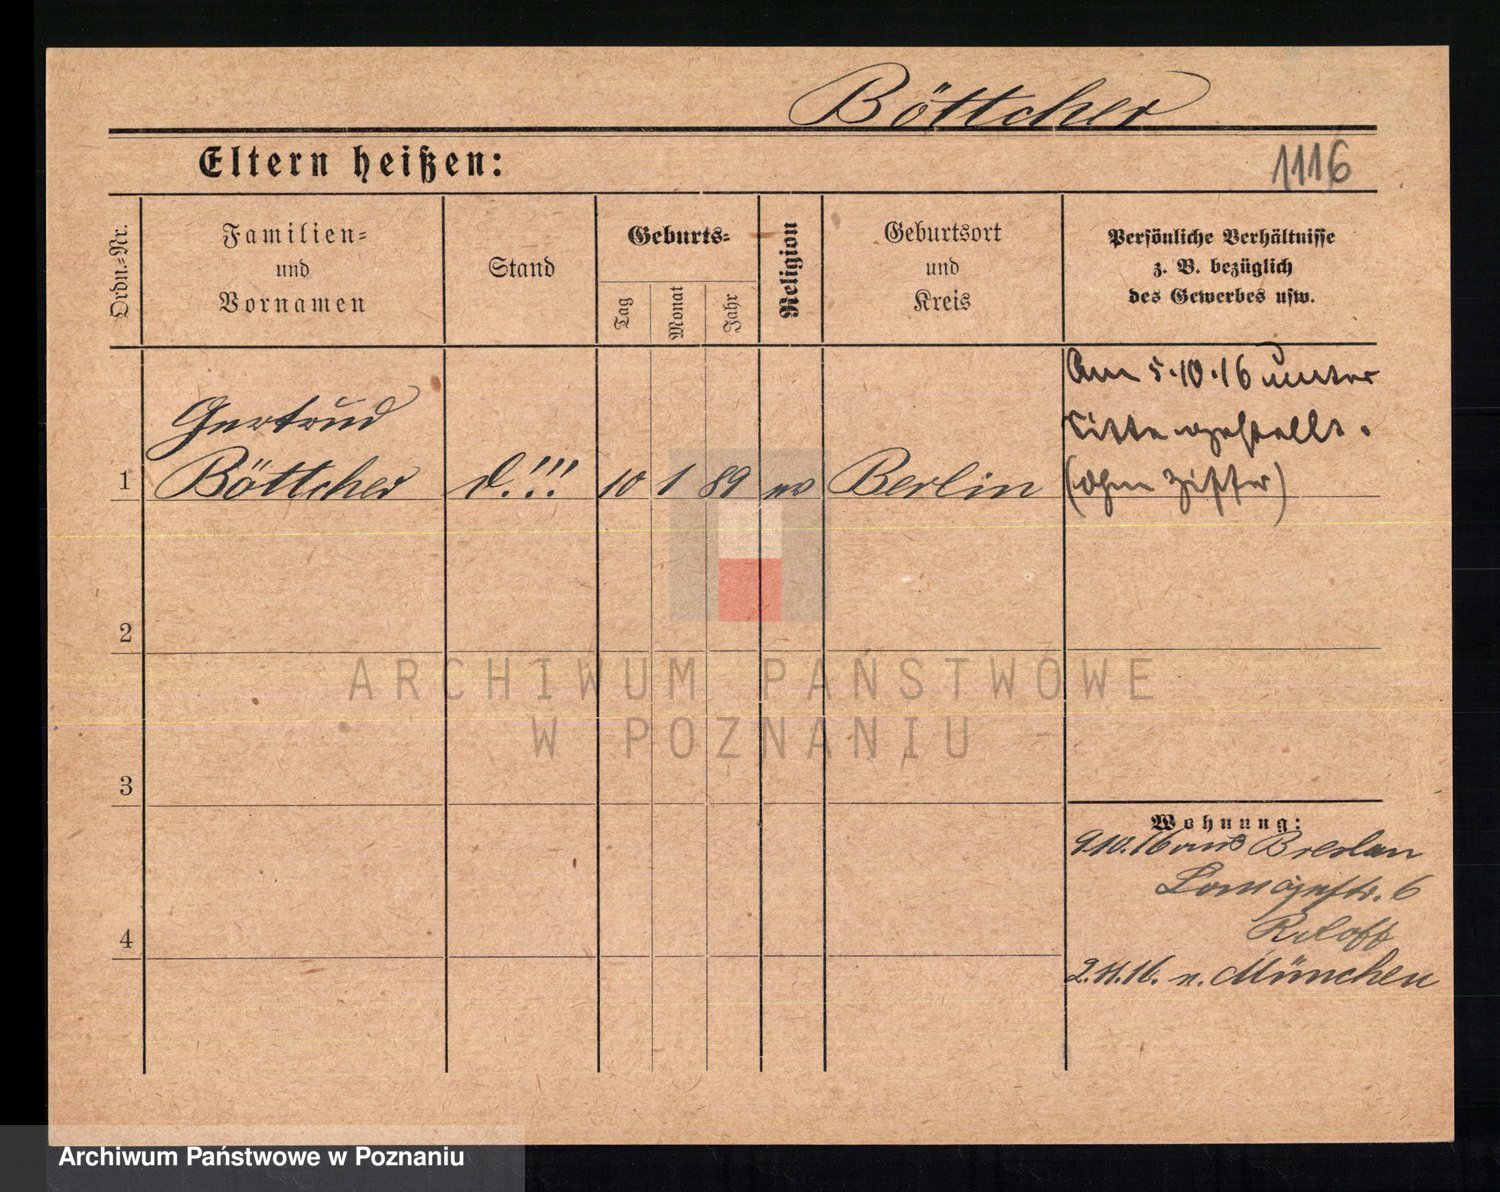 Böttcher
Eltern heißen:
1116
Ordn.-Nr.
Familien-
und
Vornamen
Stand
Geburts-
Tag
Monat
Jahr
Religion
Geburtsort
und
Kreis
Persönliche Verhältnisse
z. B. bezüglich
des Gewerbes usw.
Am 5.10.16 unter
Sitte gestellt.
(ohne Ziffer)
Gertrud
1 Böttcher d.!!! 10 1 89 ev Berlin
2
3
4
Wohnung:
9.10.16 aus Breslau
6
2.11.16. n. München
ARCHIWUM PAŃSTWOWE
W POZNANIU
Archiwum Państwowe w Poznaniu